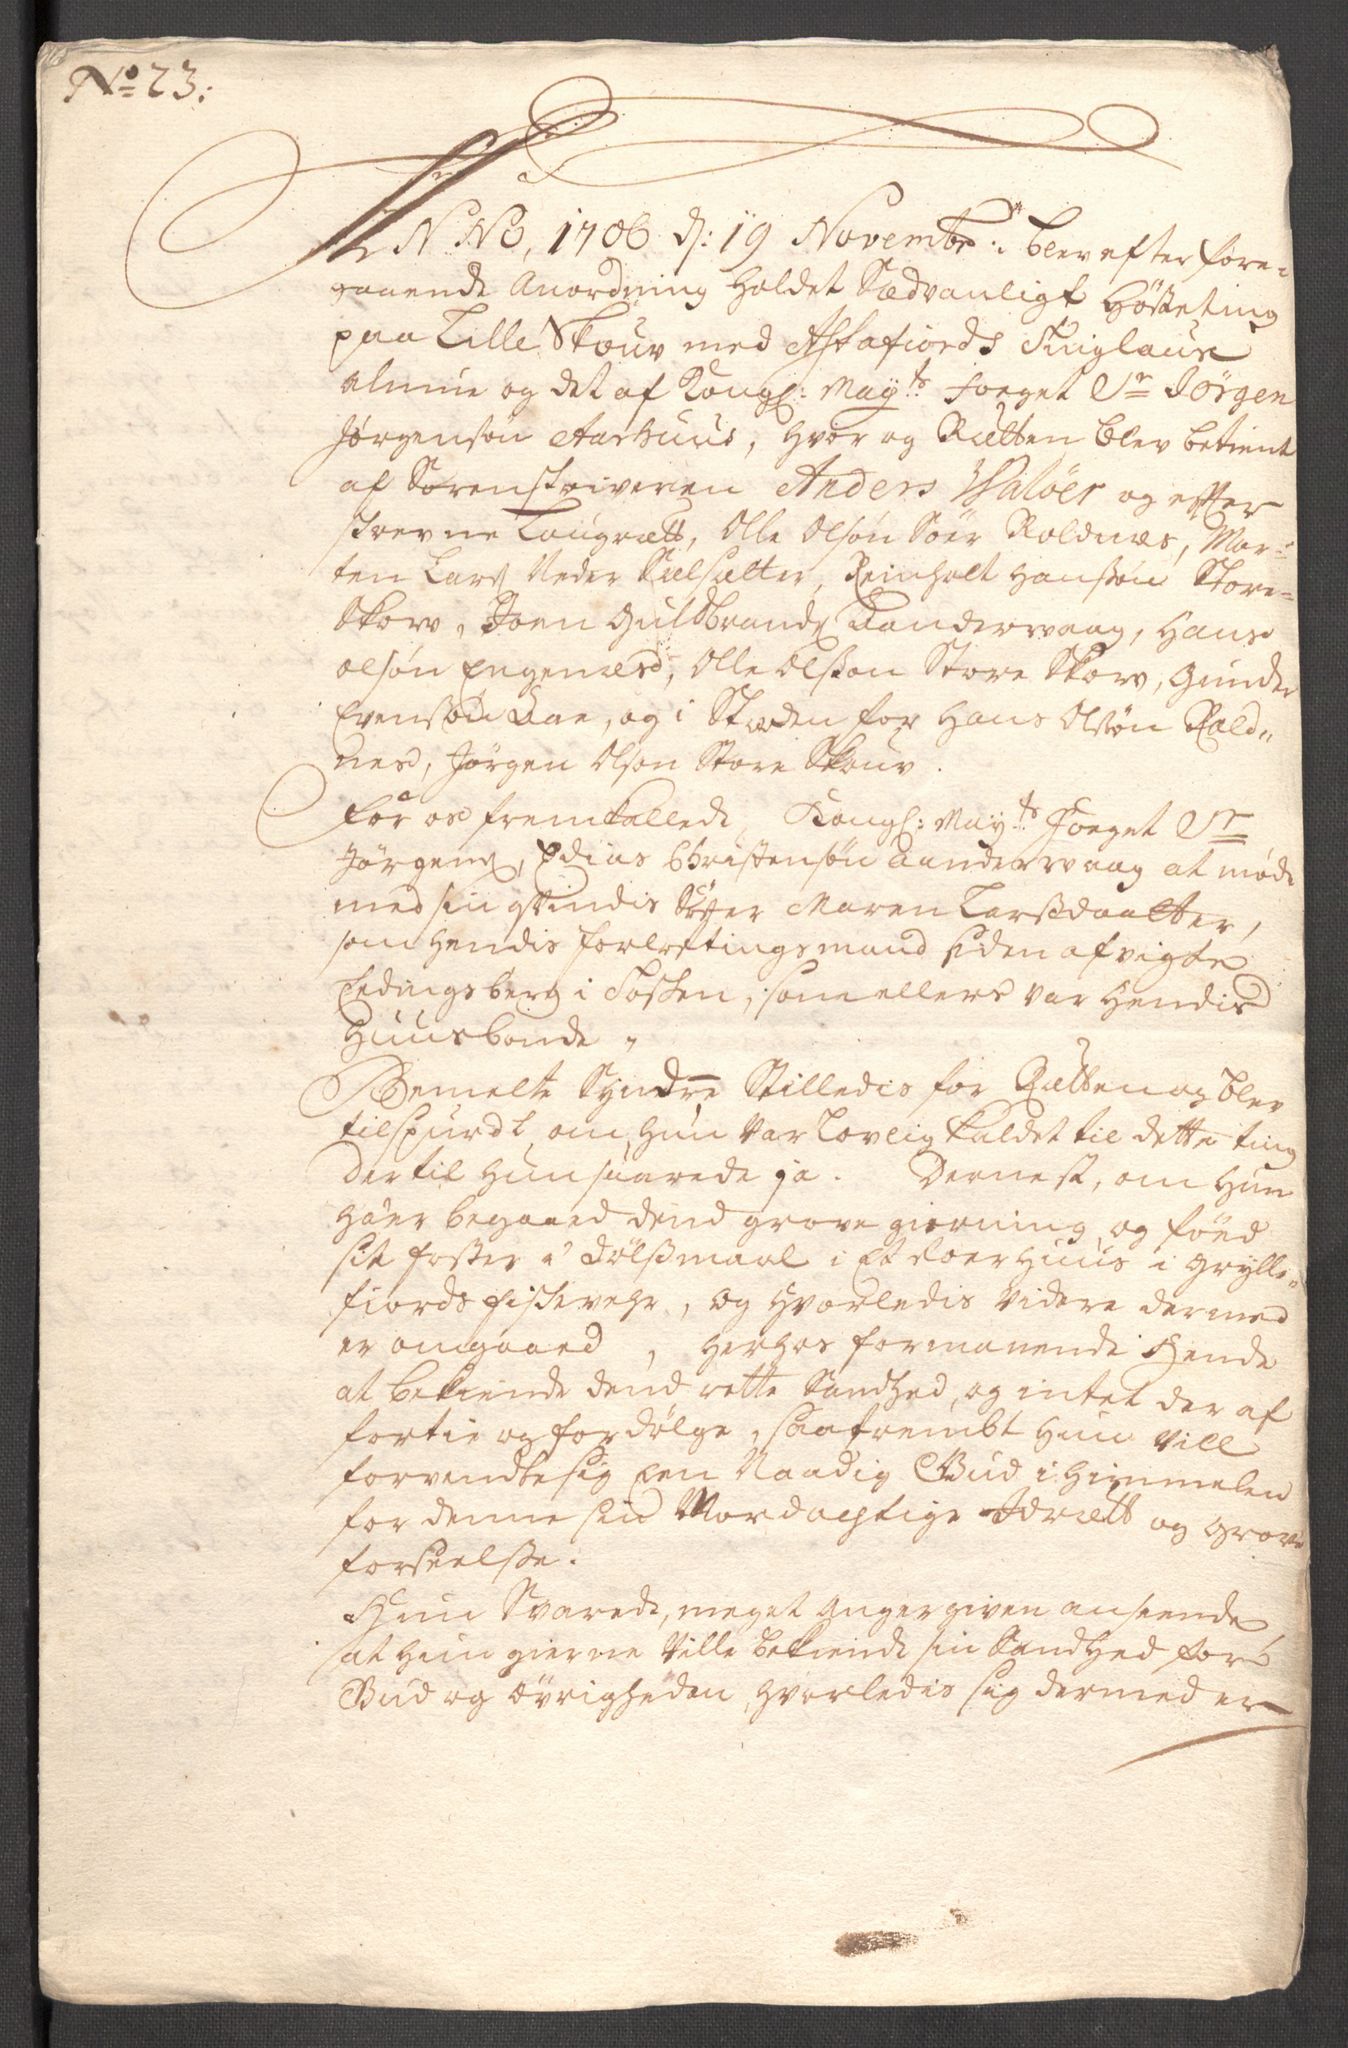 No 23:
ANNO, 1706 d: 19 Novembr: blev efter fore-
gaaende Anordning holdet Sædvanligt Høsteting
paa Lille Skouv med Astafiords Tinglaus
almue og det af Kongl: Mayts foeget Sr Jørgen
Jørgensøn Aarhuus, hvor og Rætten blev betient
af Sorenskriveren Anders Waløer og effter
skrevne Laugrætt, Olle Olsøn Sør Roldnes, Mor-
ten Lars Neder Salsætter, Reinholt Hanssøn Store-
Skow, Joen Guldbrands Aandervaag, Hans
olsøn Engenæss, Olle Olsson Store Skow, Gunder
Evenssøn Aae, og i Støden for Hans Olsøn Rold-
nes, Jørgen Olson Store Skouv.
For os fremkallede Kongl: Mayts foeget Sr
Jørgens, Edias Christensøn Aandervaag at møde
med sin qvindis Maren Larssdaatter,
som hendis forloftingsmand siden afvigte
i Tosken, som ellers var hendis
Huusbonde.
Bemelte Stilledis for Rætten og blev
tilspurdt om hun var lovlig kaldet til dette ting
der til hun suarede ja. Dernest, om hun
haer begaaed dend grove gierning, og føed
sit foster i dølssmaal i Et Roerhuus i Grylle-
fiords fiskevehr, og hvorledis videre dermed
er omgaaed, herhos formanende Hende
at bekiende dend rette Sandhed, og intet der af
fortie og fordølge, saafremt hun vill
forvendte sig Een Naadig Gud i himmelen
for denne sin Mordagtige Idrætt og grove
forseelsse.
Hun Svarede, meget angergiven anseende,
at hun gierne ville bekiende sin Sandhed for
Gud og øvrigheden, hvorledis sig dermed er